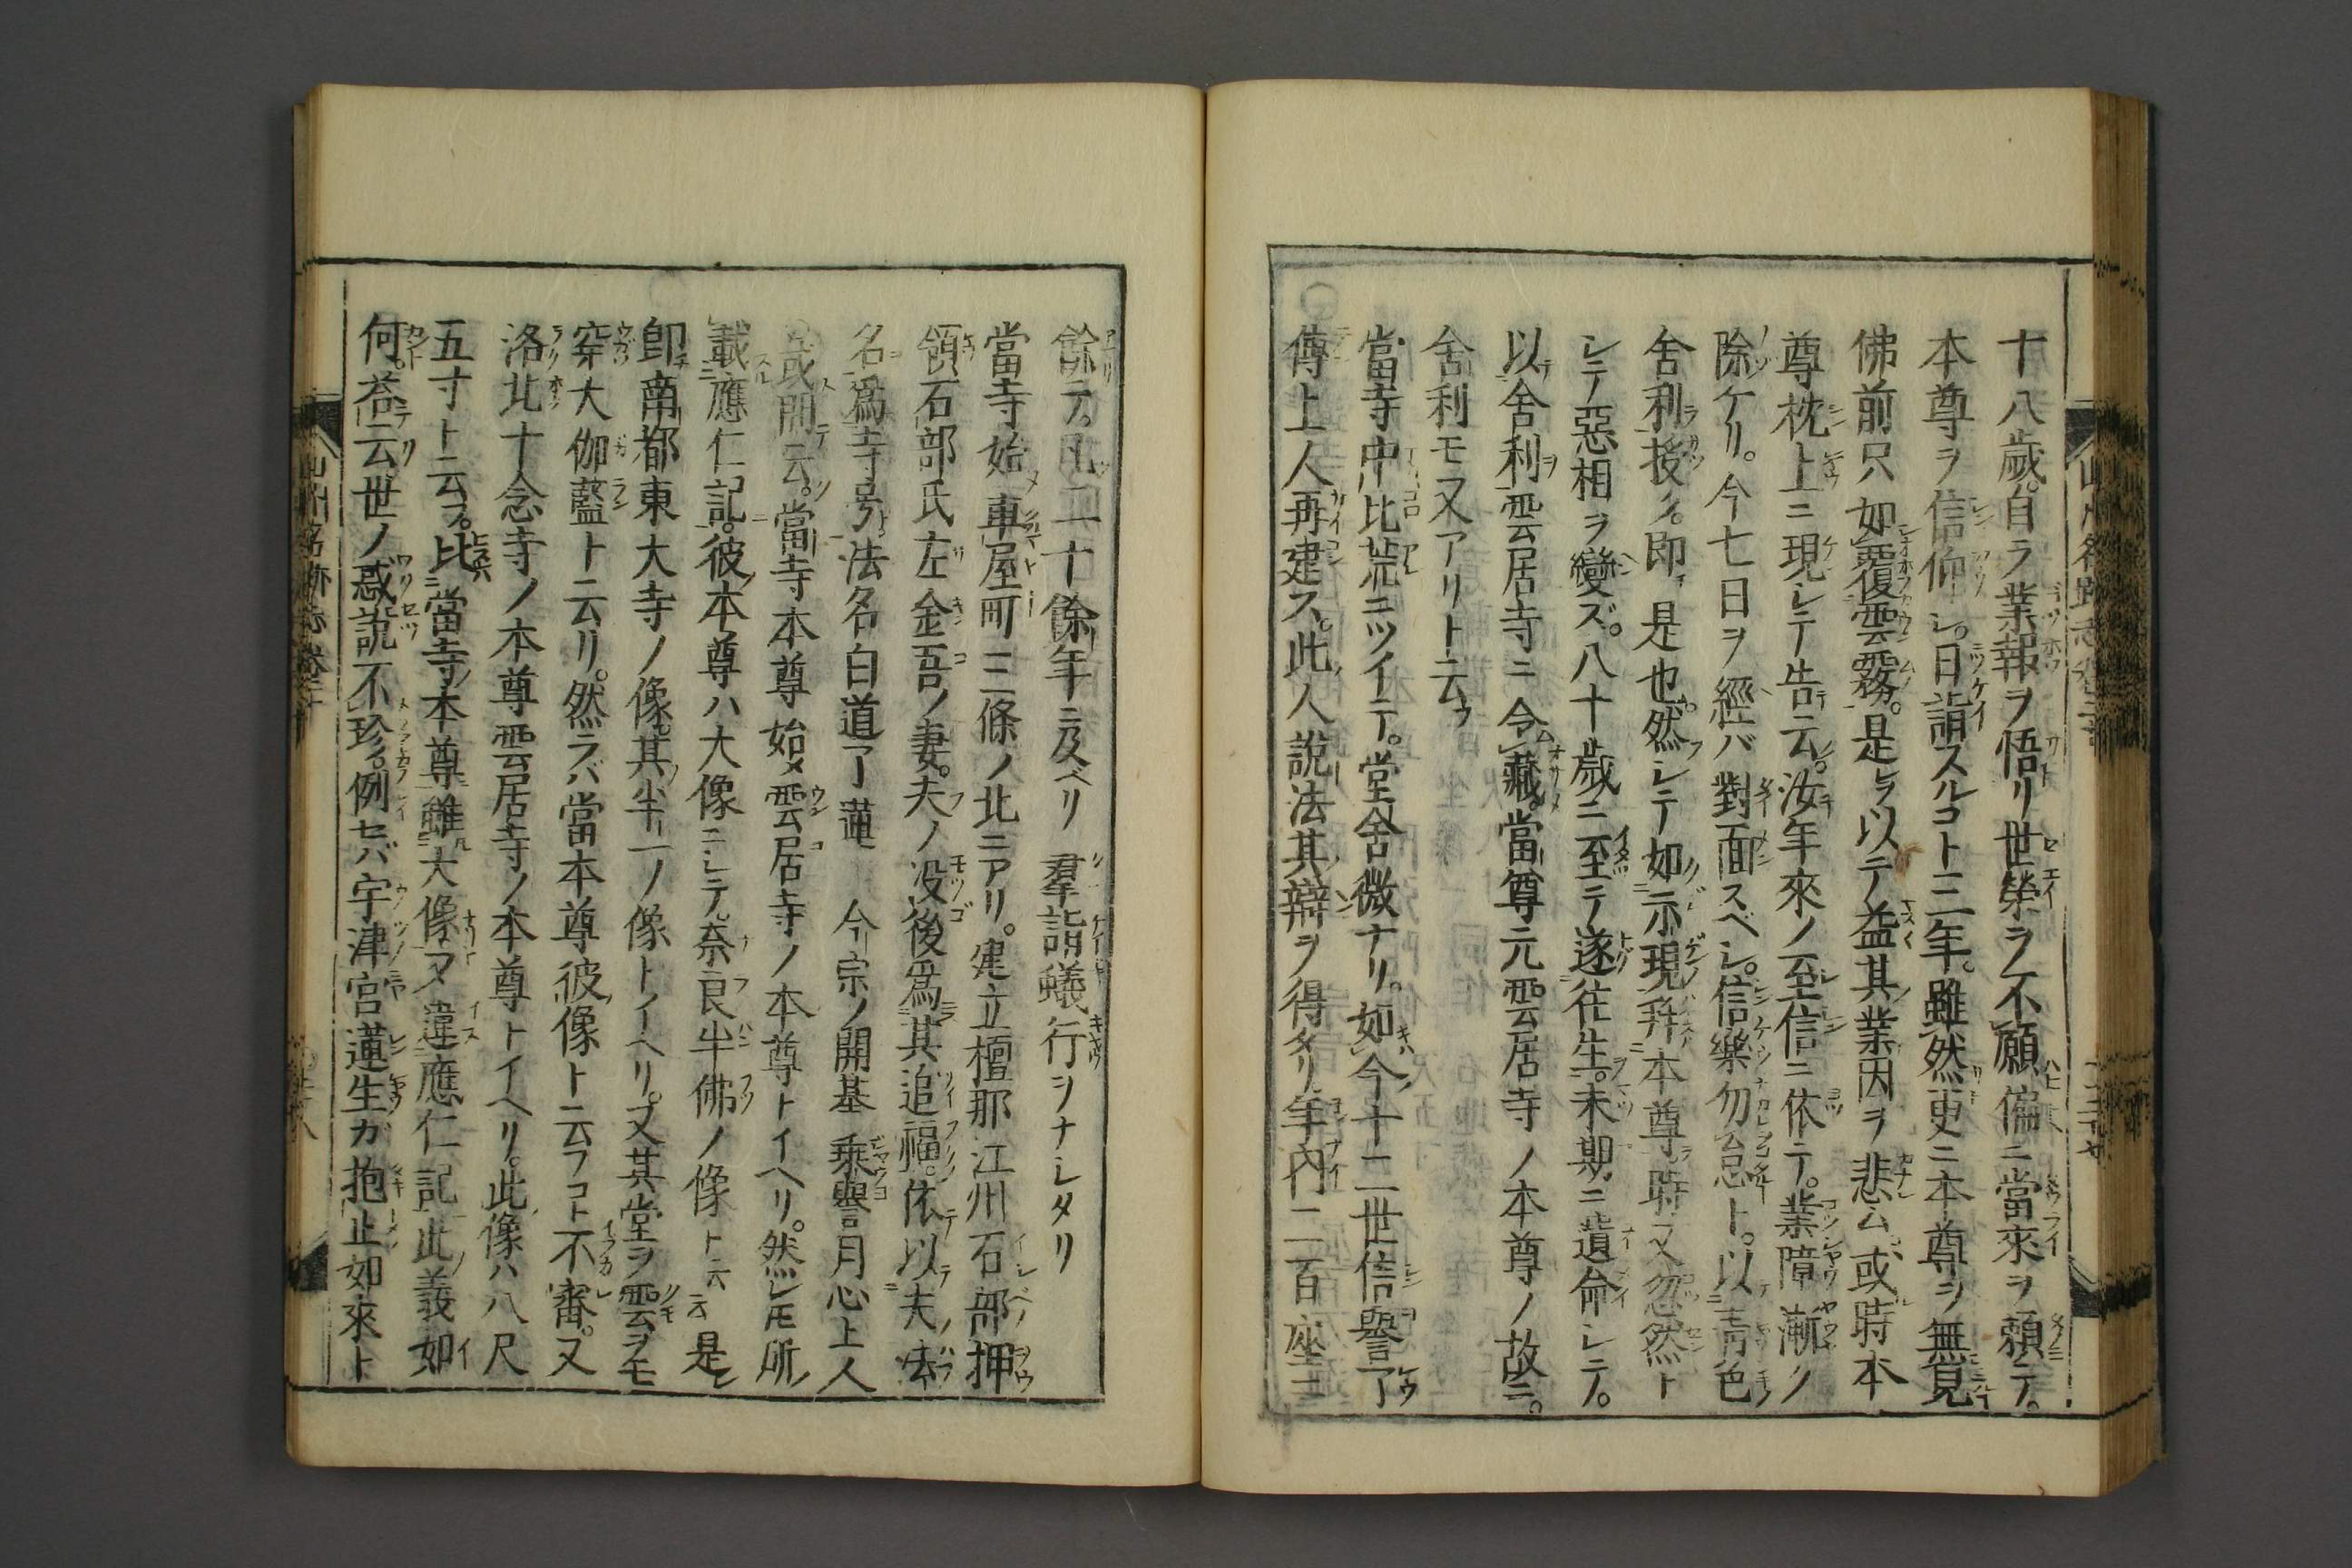 十八歳。自ラ業報ヲ悟リ世榮ヲ不願偏ニ當來ヲ頼テ。
本尊ヲ信仰シ。日詣スルコト三年。雖然更ニ本尊ヲ無見
佛前只如覆雲霧。是ヲ以テ益其業因ヲ悲ム。或時本
尊枕上ニ現シテ告云。汝年來ノ至信ニ依テ。業障漸ク
除ケリ。今七日ヲ經バ對面スベシ。信樂勿怠ト。以青色
舍利授ク。即是也。然シテ如示現拜本尊。時又忽然ト
シテ惡相ヲ變ズ。八十歳ニ至テ遂往生。末期ニ遺命シテ。
以舍利雲居寺ニ令藏。當尊元雲居寺ノ本尊ノ故ニ。
舍利モ又アリト云ウ
當寺中比荒ニツイテ。堂舍微ナリ。如今十二世信譽了
傳上人再建ス。此人說法其辯ヲ得タリ年內二百座ニ
餘テ。凡二十餘年ニ及ベリ 羣詣蟻行ヲナシタリ
當寺始車屋町三條ノ北ニアリ。建立檀那江州石部押
領石部氏左金吾ノ妻。夫ノ没後爲其追福。依以夫法
名爲寺号。法名白道了蓮 今宗ノ開基乗譽月心上人
或問云。當寺本尊始メ雲居寺ノ本尊トイヘリ。然レモ所
載應仁記。彼本尊ハ大像ニシテ。奈良半佛ノ像ト云云是
卽南都東大寺ノ像。其半ノ像トイヘリ。又其堂ヲ雲ヲモ
穿大伽藍ト云リ。然ラバ當本尊彼像ト云フコト不審。又
洛北十念寺ノ本尊雲居寺ノ本尊トイヘリ。此像ハ八尺
五寸ト云フ。比當寺本尊雖大像又違應仁記此義如
何。荅云世ノ惑說不珍。例セバ宇津宮蓮生ガ抱止如來ト
山州名跡志卷二十